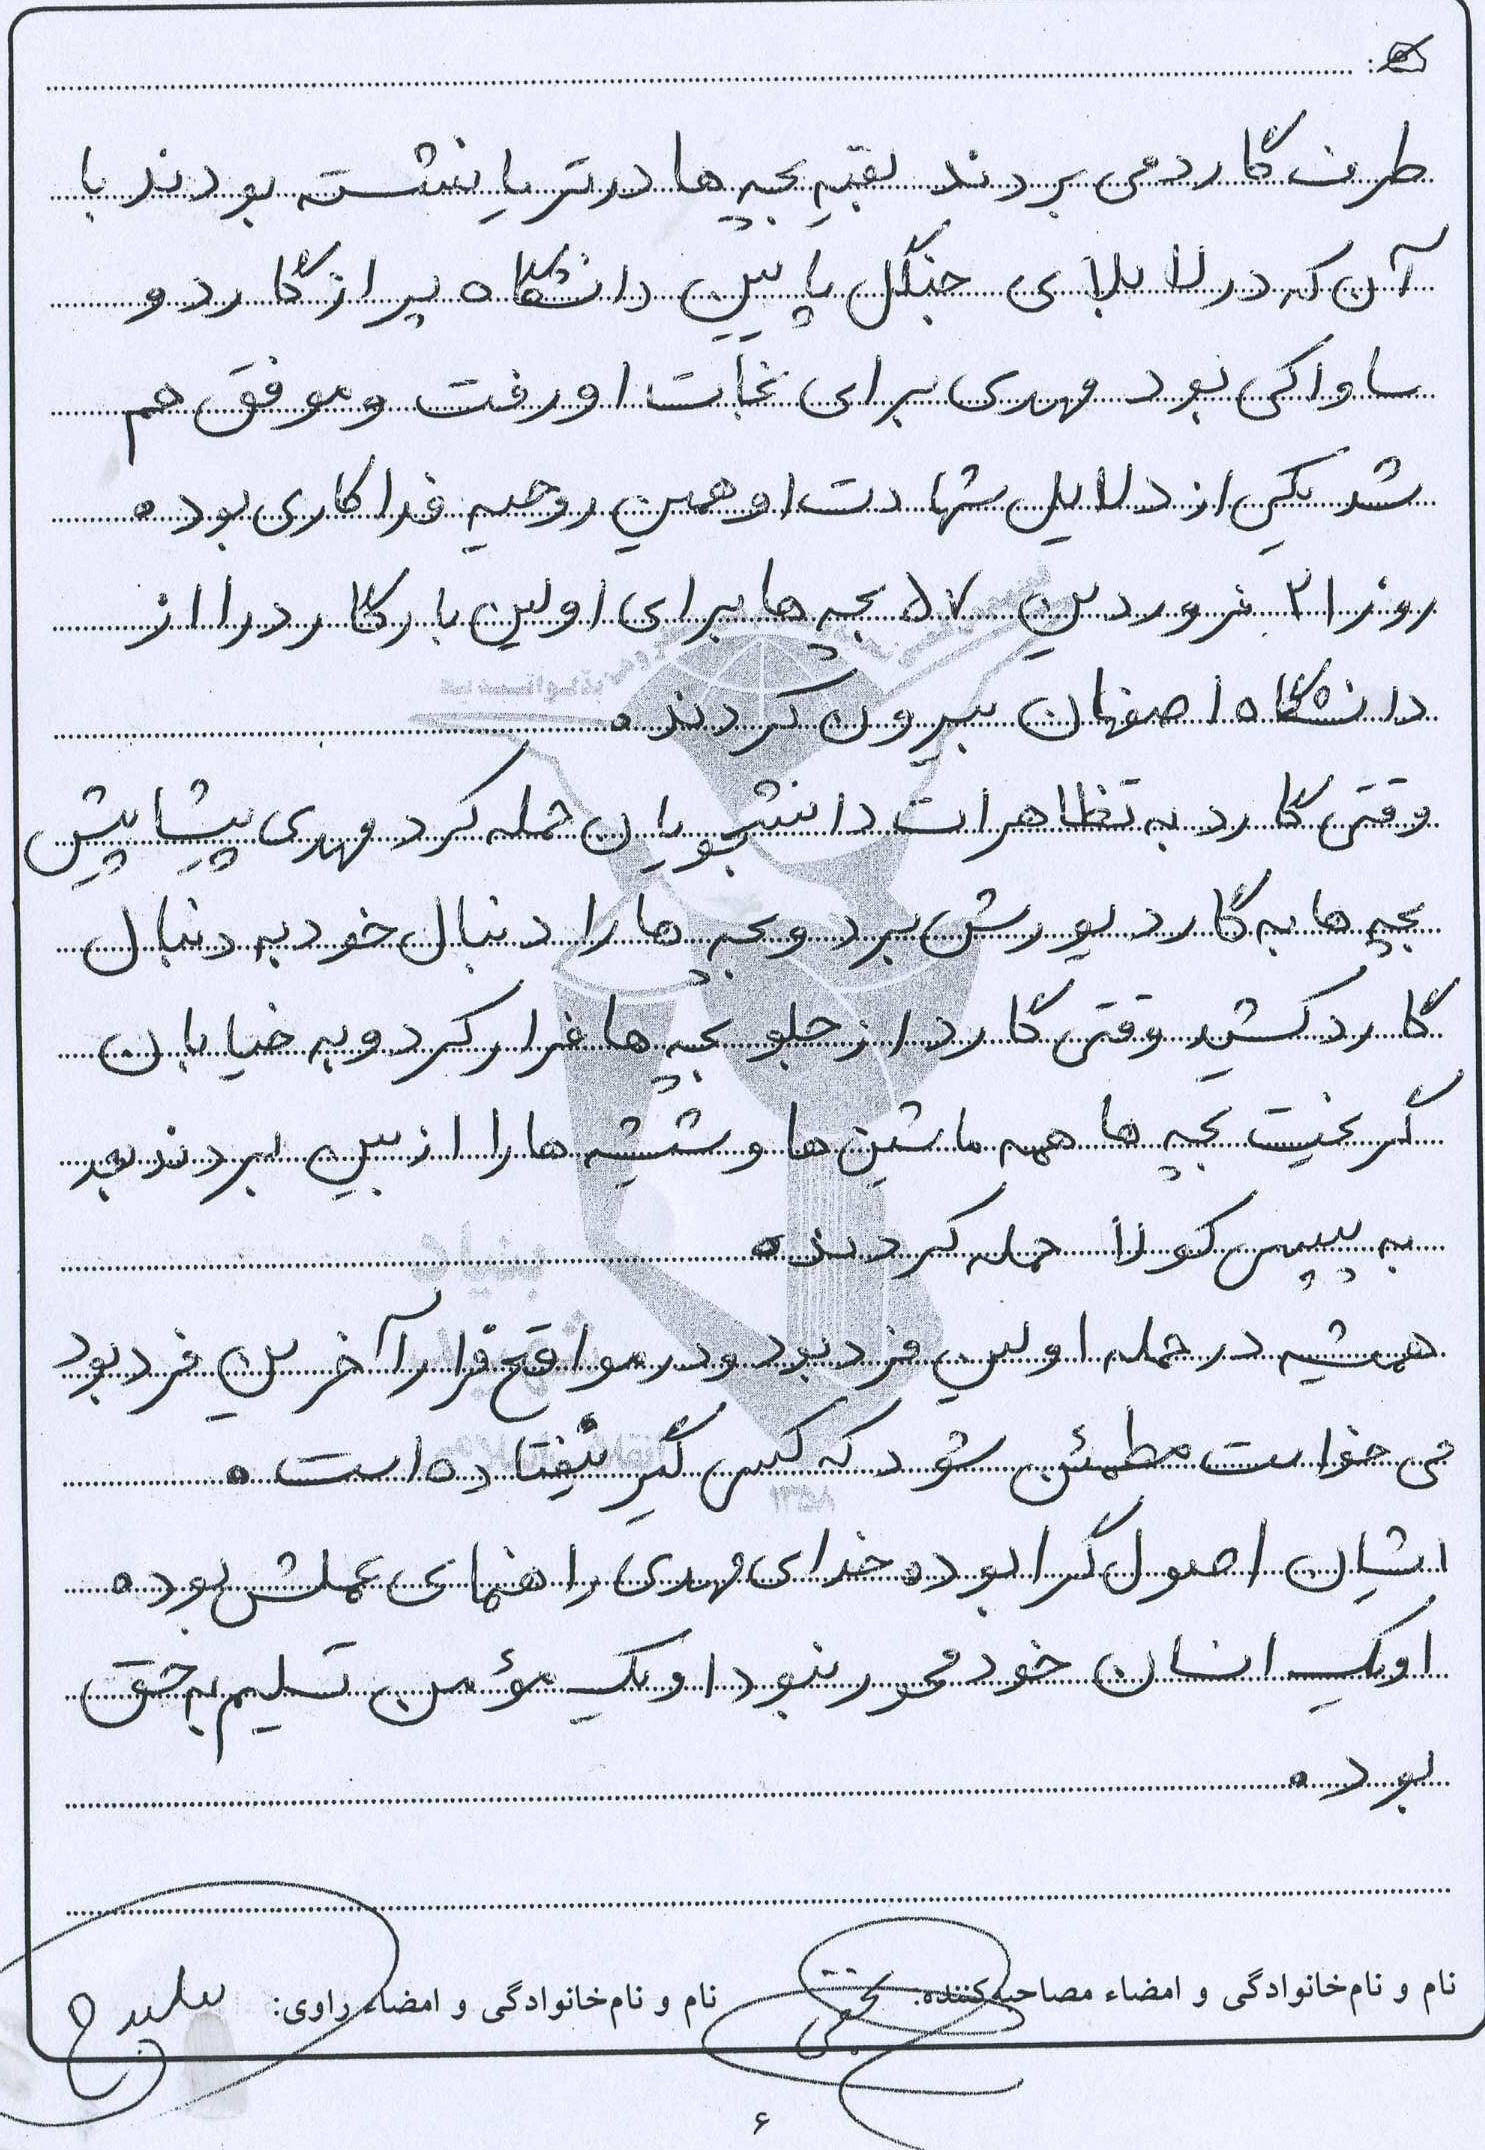 طرف گارد می بردند بقیه بچه ها در تریا نشسته بودند با
آن که در لا بلای جنگل پایین دانشگاه پر از گارد و
ساواکی بود مهدی برای نجات او رفت و موفق هم
شد یکی از دلایل شهادت او همین روحیه فداکاری بود.
روز ۲۱ فروردین ۵۷ بچه ها برای اولین بار گارد را از
دانشگاه اصفهان بیرون کردند.
وقتی گارد به تظاهرات دانشجویان حمله کرد مهدی پیشاپیش
بچه ها به گارد یورش برد و بچه ها را دنبال خود به دنبال
گارد کشید وقتی گارد از جلو بچه ها فرار کرد و به خیابان
گریخت بچه ها همه ماشین ها و شیشه ها را از بین بردند بعد
به پپسی کولا حمله کردند.
همیشه در حمله اولین فرد بود و در مواقع فرار آخرین فرد بود
می خواست مطمئن شود که کسی گیر نیفتاده است.
ایشان اصول گرا بود. خدای مهدی راهنمای عملش بود.
او یک انسان خود محور نبود او یک مؤمن تسلیم به حق
بود.
نام و نام‌خانوادگی و امضاء مصاحبه‌کننده: نام و نام‌خانوادگی و امضاء راوی:
۶